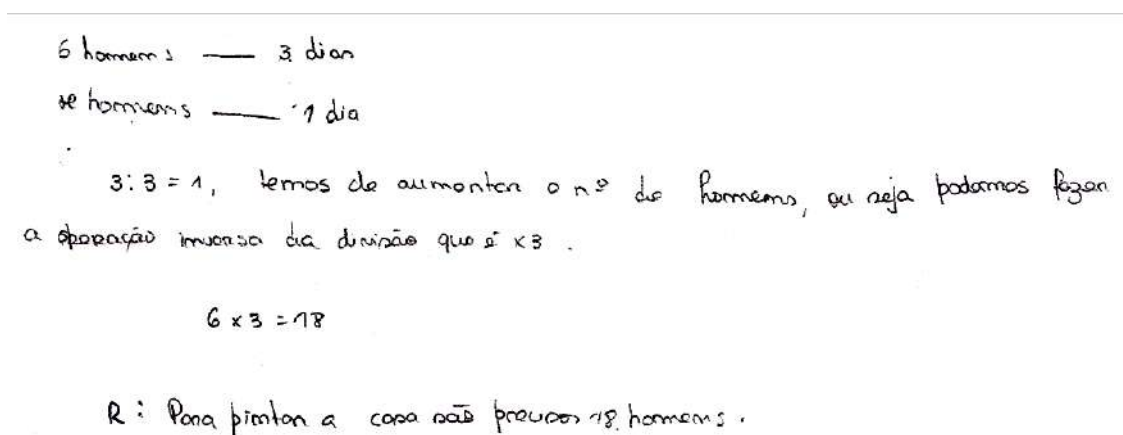 6 homens — 3 dias
x homens — 1 dia
3:3 = 1, temos de aumentar o nº de homens, ou seja podemos fazer
a operação inversa da divisão que é x3.
6 x 3 = 18
R: Para pintar a casa são precisos 18 homens.